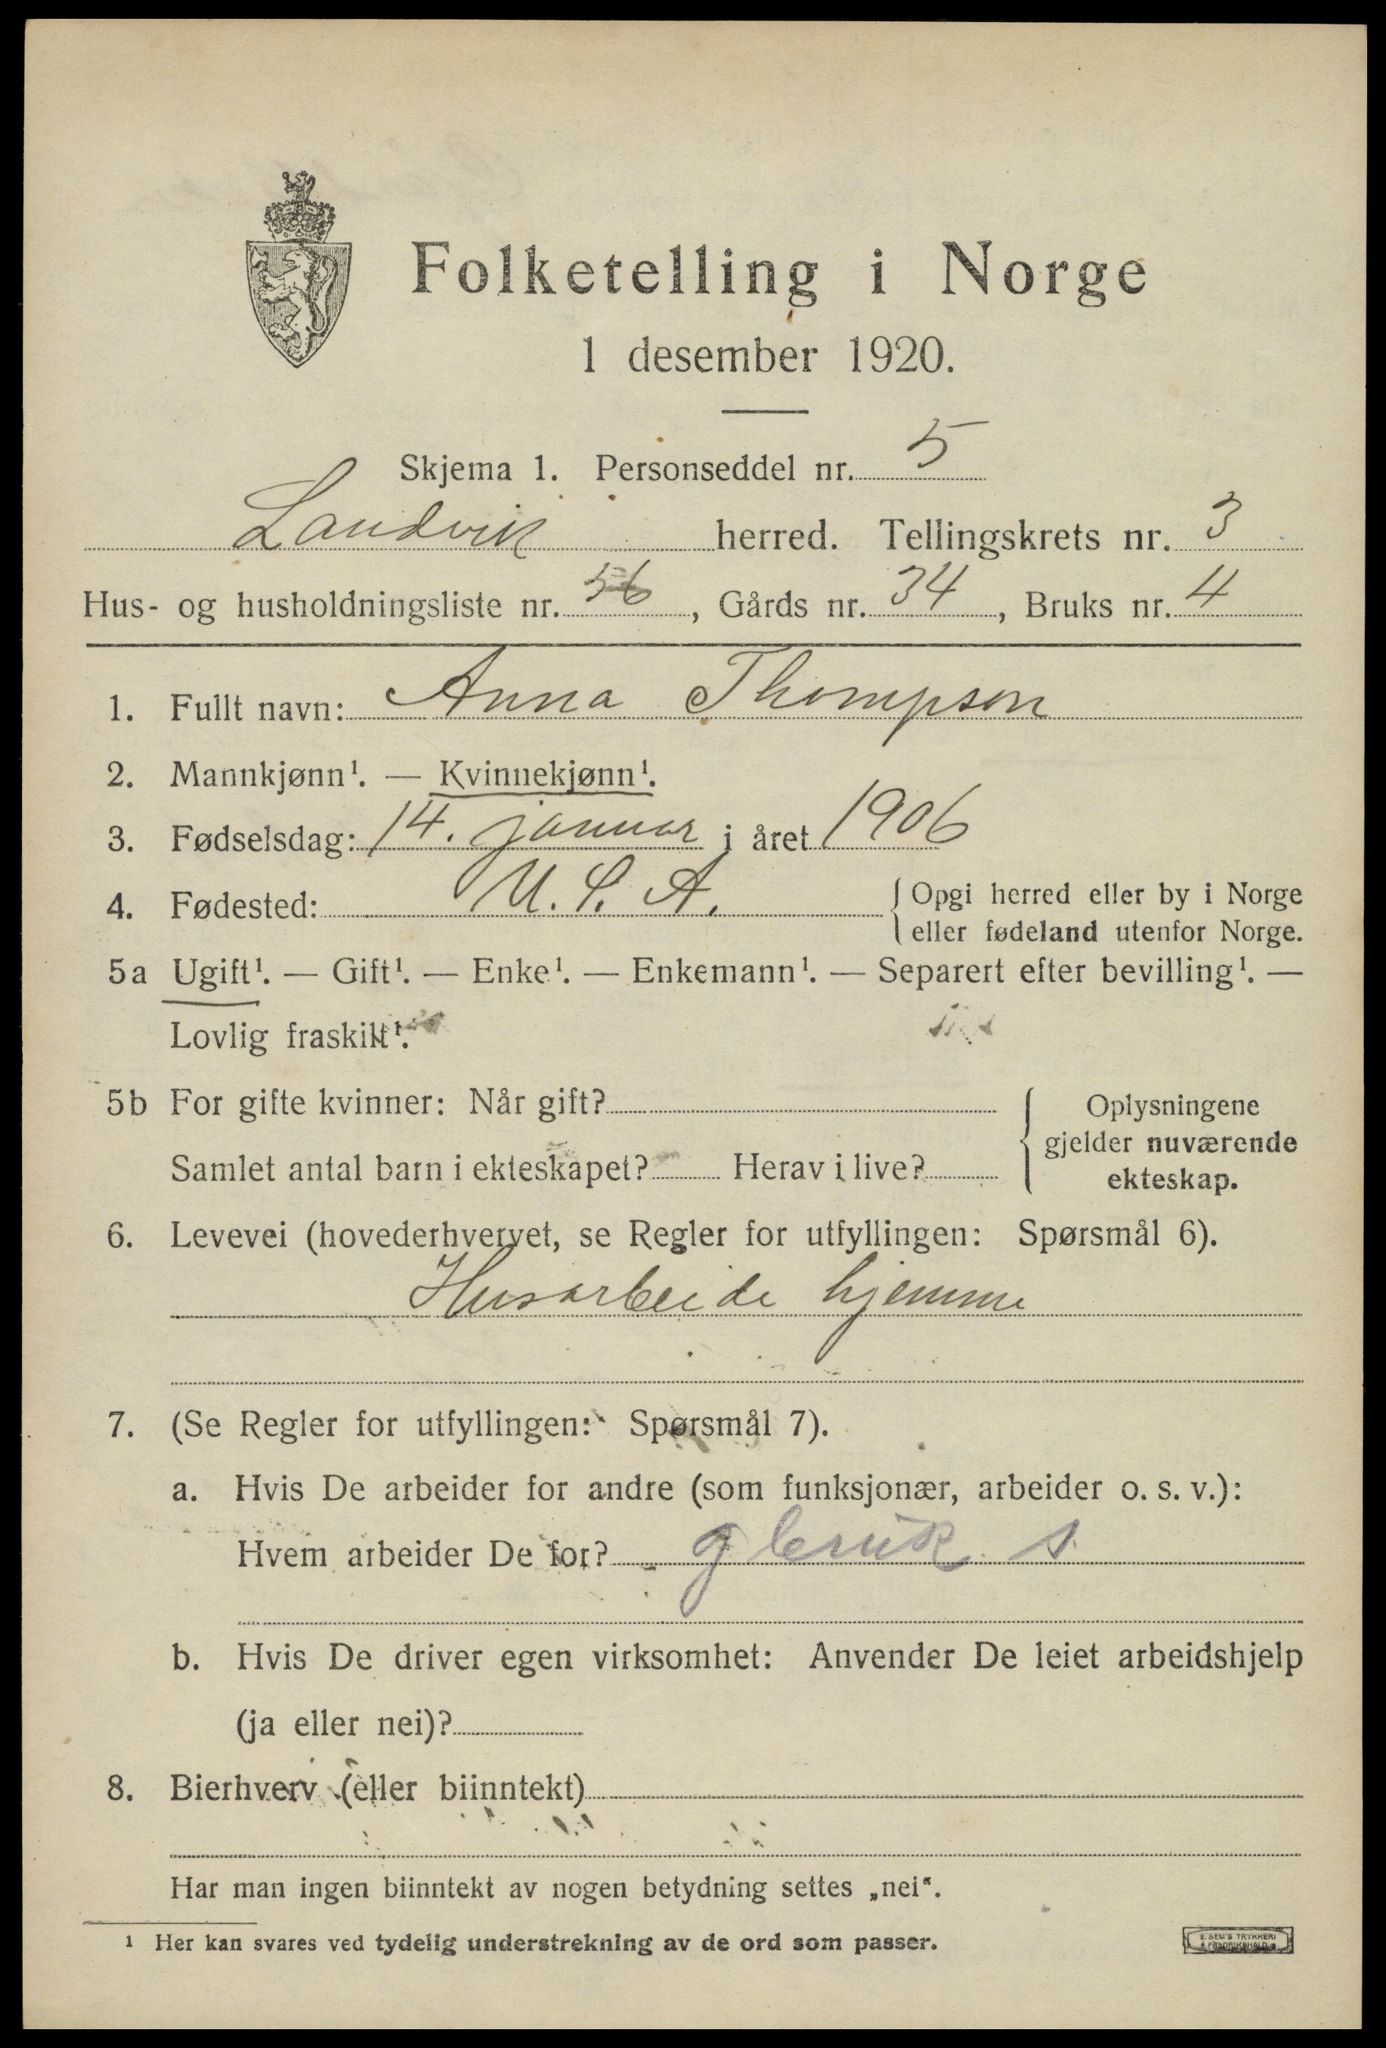 Folketelling i Norge
1 desember 1920.
Skjema 1. Personseddel nr. 5
Landvik herred. Tellingskrets nr. 3
Hus- og husholdningsliste nr. 56, Gårds nr. 34, Bruks nr. 4
1. Fullt navn: Anna Thompson
2. Mannkjønn¹. — Kvinnekjønn¹.
3. Fødselsdag: 14. januar i året 1906
4. Fødested: U. S. A. { Opgi herred eller by i Norge
eller fødeland utenfor Norge.
5a Ugift¹. — Gift¹. — Enke¹. — Enkemann¹. — Separert efter bevilling¹. —
Lovlig fraskilt¹.
5b For gifte kvinner: Når gift?
Samlet antal barn i ekteskapet? Herav i live?
Oplysningene
gjelder nuværende
ekteskap.
6. Levevei (hovederhvervet, se Regler for utfyllingen: Spørsmål 6).
Husarbeide hjemme
7. (Se Regler for utfyllingen: Spørsmål 7).
a. Hvis De arbeider for andre (som funksjonær, arbeider o. s. v.):
Hvem arbeider De for? gbruk s
b. Hvis De driver egen virksomhet: Anvender De leiet arbeidshjelp
(ja eller nei)?
8. Bierhverv (eller biinntekt)
Har man ingen biinntekt av nogen betydning settes „nei“.
¹ Her kan svares ved tydelig understrekning av de ord som passer.
E. SEM'S TRYKKERI
FREDRIKSHALD